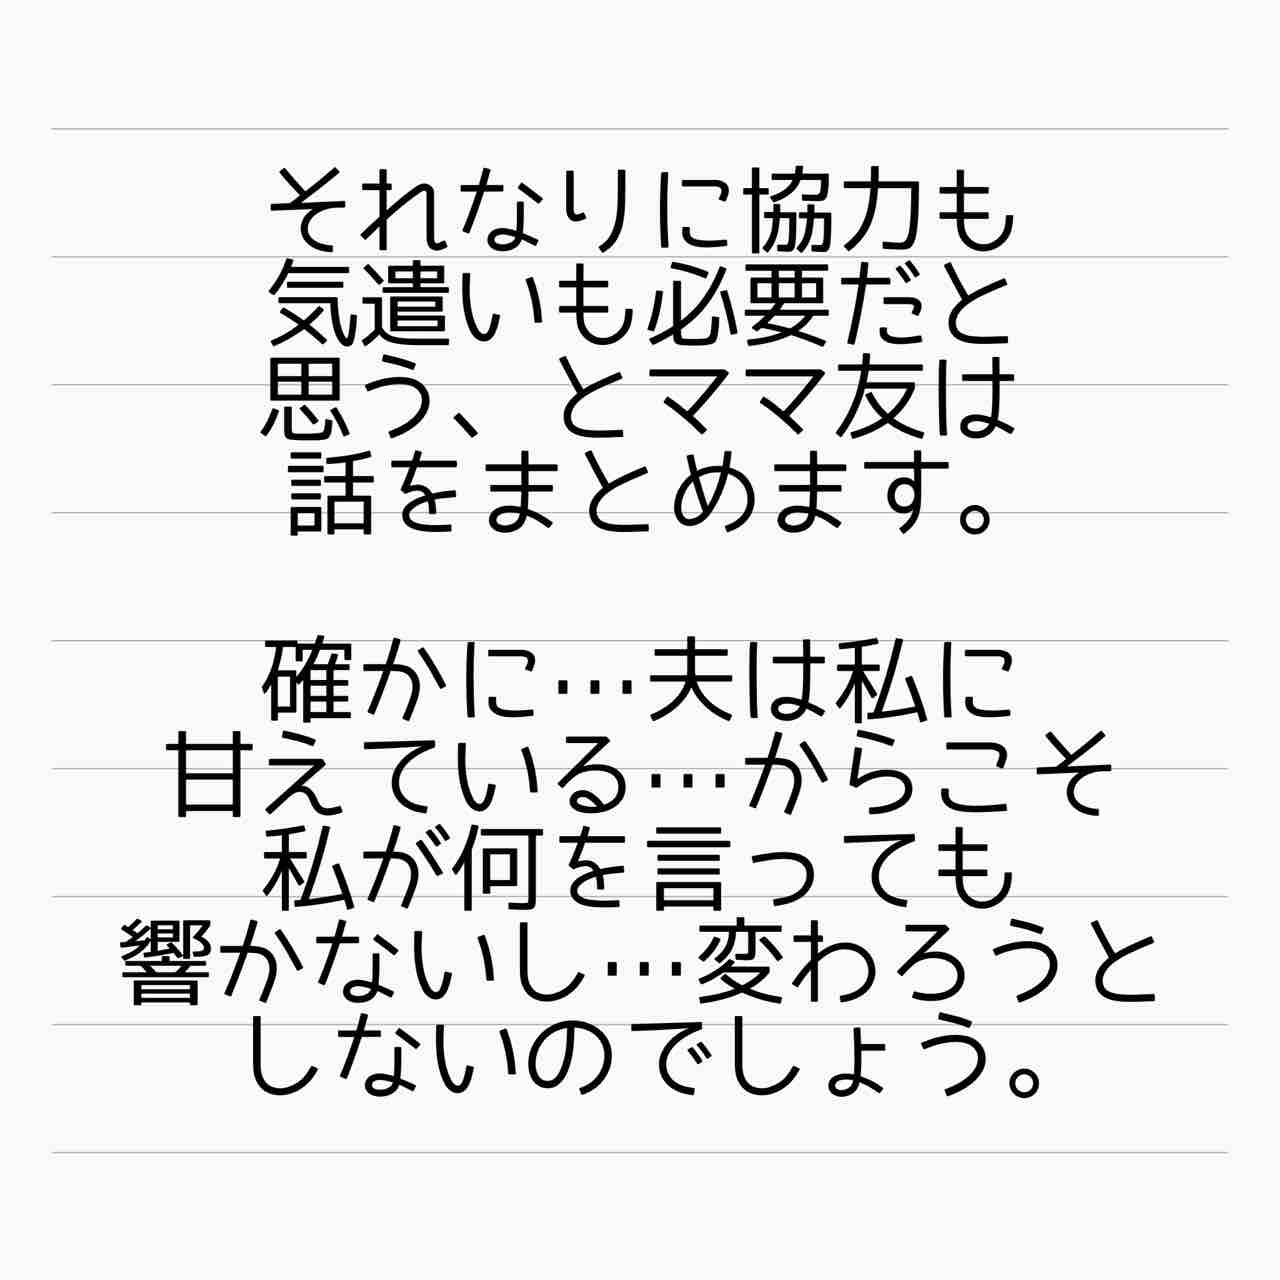 それなりに協力も
気遣いも必要だと
思う、とママ友は
話をまとめます。
確かに…夫は私に
甘えている…からこそ
私が何を言っても
響かないし…変わろうと
しないのでしょう。